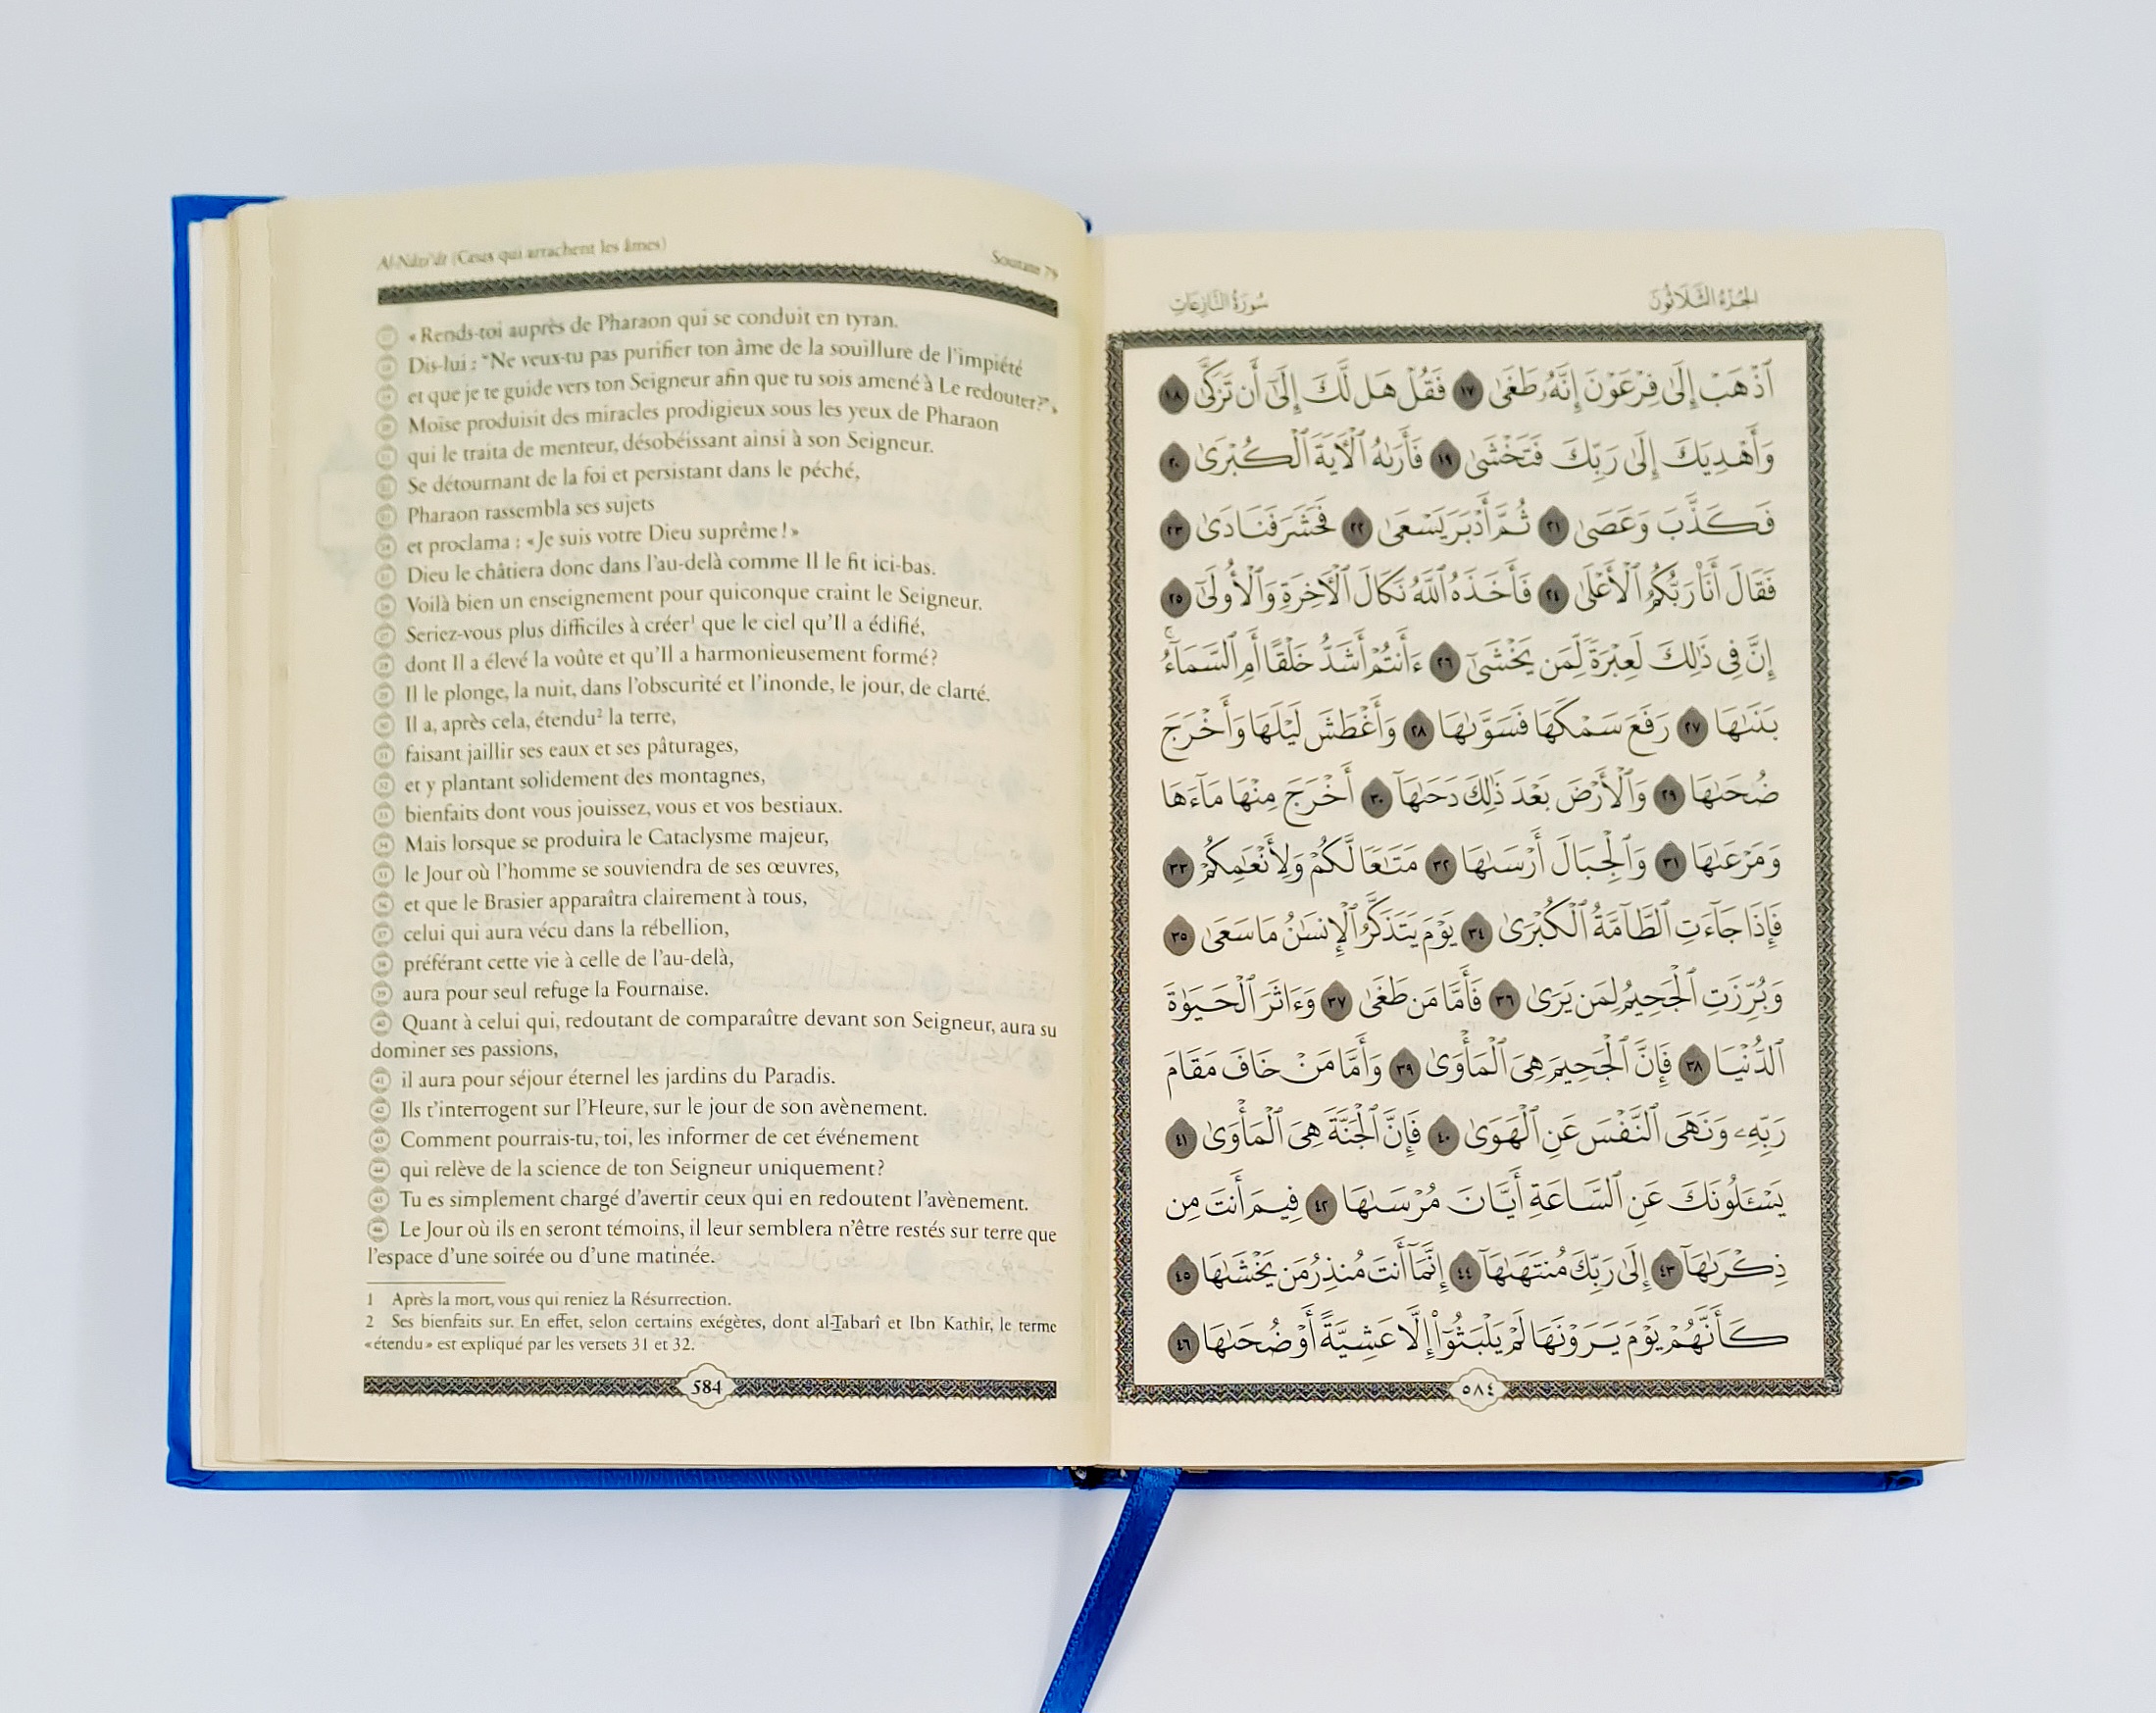 Al-Nâzi‘ât (Ceux qui arrachent les âmes)
Sourate 79
17 «Rends-toi auprès de Pharaon qui se conduit en tyran.
18 Dis-lui : “Ne veux-tu pas purifier ton âme de la souillure de l’impiété
19 et que je te guide vers ton Seigneur afin que tu sois amené à Le redouter?”»
20 Moïse produisit des miracles prodigieux sous les yeux de Pharaon
21 qui le traita de menteur, désobéissant ainsi à son Seigneur.
22 Se détournant de la foi et persistant dans le péché,
23 Pharaon rassembla ses sujets
24 et proclama : «Je suis votre Dieu suprême!»
25 Dieu le châtiera donc dans l’au-delà comme Il le fit ici-bas.
26 Voilà bien un enseignement pour quiconque craint le Seigneur.
27 Seriez-vous plus difficiles à créer¹ que le ciel qu’Il a édifié,
28 dont Il a élevé la voûte et qu’Il a harmonieusement formé?
29 Il le plonge, la nuit, dans l’obscurité et l’inonde, le jour, de clarté.
30 Il a, après cela, étendu² la terre,
31 faisant jaillir ses eaux et ses pâturages,
32 et y plantant solidement des montagnes,
33 bienfaits dont vous jouissez, vous et vos bestiaux.
34 Mais lorsque se produira le Cataclysme majeur,
35 le Jour où l’homme se souviendra de ses œuvres,
36 et que le Brasier apparaîtra clairement à tous,
37 celui qui aura vécu dans la rébellion,
38 préférant cette vie à celle de l’au-delà,
39 aura pour seul refuge la Fournaise.
40 Quant à celui qui, redoutant de comparaître devant son Seigneur, aura su
dominer ses passions,
41 il aura pour séjour éternel les jardins du Paradis.
42 Ils t’interrogent sur l’Heure, sur le jour de son avènement.
43 Comment pourrais-tu, toi, les informer de cet événement
44 qui relève de la science de ton Seigneur uniquement?
45 Tu es simplement chargé d’avertir ceux qui en redoutent l’avènement.
46 Le Jour où ils en seront témoins, il leur semblera n’être restés sur terre que
l’espace d’une soirée ou d’une matinée.
1 Après la mort, vous qui reniez la Résurrection.
2 Ses bienfaits sur. En effet, selon certains exégètes, dont al-Tabarî et Ibn Kathîr, le terme
«étendu» est expliqué par les versets 31 et 32.
584
الجُزْءُ الثَّلَاثُونَ
سُورَةُ النَّازِعَاتِ
ٱذْهَبْ إِلَىٰ فِرْعَوْنَ إِنَّهُۥ طَغَىٰ ١٧ فَقُلْ هَل لَّكَ إِلَىٰٓ أَن تَزَكَّىٰ ١٨
وَأَهْدِيَكَ إِلَىٰ رَبِّكَ فَتَخْشَىٰ ١٩ فَأَرَىٰهُ ٱلْءَايَةَ ٱلْكُبْرَىٰ ٢٠
فَكَذَّبَ وَعَصَىٰ ٢١ ثُمَّ أَدْبَرَ يَسْعَىٰ ٢٢ فَحَشَرَ فَنَادَىٰ ٢٣
فَقَالَ أَنَا۠ رَبُّكُمُ ٱلْأَعْلَىٰ ٢٤ فَأَخَذَهُ ٱللَّهُ نَكَالَ ٱلْءَاخِرَةِ وَٱلْأُولَىٰٓ ٢٥
إِنَّ فِى ذَٰلِكَ لَعِبْرَةً لِّمَن يَخْشَىٰٓ ٢٦ ءَأَنتُمْ أَشَدُّ خَلْقًا أَمِ ٱلسَّمَآءُ ۚ
بَنَىٰهَا ٢٧ رَفَعَ سَمْكَهَا فَسَوَّىٰهَا ٢٨ وَأَغْطَشَ لَيْلَهَا وَأَخْرَجَ
ضُحَىٰهَا ٢٩ وَٱلْأَرْضَ بَعْدَ ذَٰلِكَ دَحَىٰهَآ ٣٠ أَخْرَجَ مِنْهَا مَآءَهَا
وَمَرْعَىٰهَا ٣١ وَٱلْجِبَالَ أَرْسَىٰهَا ٣٢ مَتَٰعًا لَّكُمْ وَلِأَنْعَٰمِكُمْ ٣٣
فَإِذَا جَآءَتِ ٱلطَّآمَّةُ ٱلْكُبْرَىٰ ٣٤ يَوْمَ يَتَذَكَّرُ ٱلْإِنسَٰنُ مَا سَعَىٰ ٣٥
وَبُرِّزَتِ ٱلْجَحِيمُ لِمَن يَرَىٰ ٣٦ فَأَمَّا مَن طَغَىٰ ٣٧ وَءَاثَرَ ٱلْحَيَوٰةَ
ٱلدُّنْيَا ٣٨ فَإِنَّ ٱلْجَحِيمَ هِىَ ٱلْمَأْوَىٰ ٣٩ وَأَمَّا مَنْ خَافَ مَقَامَ
رَبِّهِۦ وَنَهَى ٱلنَّفْسَ عَنِ ٱلْهَوَىٰ ٤٠ فَإِنَّ ٱلْجَنَّةَ هِىَ ٱلْمَأْوَىٰ ٤١
يَسْـَٔلُونَكَ عَنِ ٱلسَّاعَةِ أَيَّانَ مُرْسَىٰهَا ٤٢ فِيمَ أَنتَ مِن
ذِكْرَىٰهَآ ٤٣ إِلَىٰ رَبِّكَ مُنتَهَىٰهَآ ٤٤ إِنَّمَآ أَنتَ مُنذِرُ مَن يَخْشَىٰهَا ٤٥
كَأَنَّهُمْ يَوْمَ يَرَوْنَهَا لَمْ يَلْبَثُوٓا۟ إِلَّا عَشِيَّةً أَوْ ضُحَىٰهَا ٤٦
٥٨٤